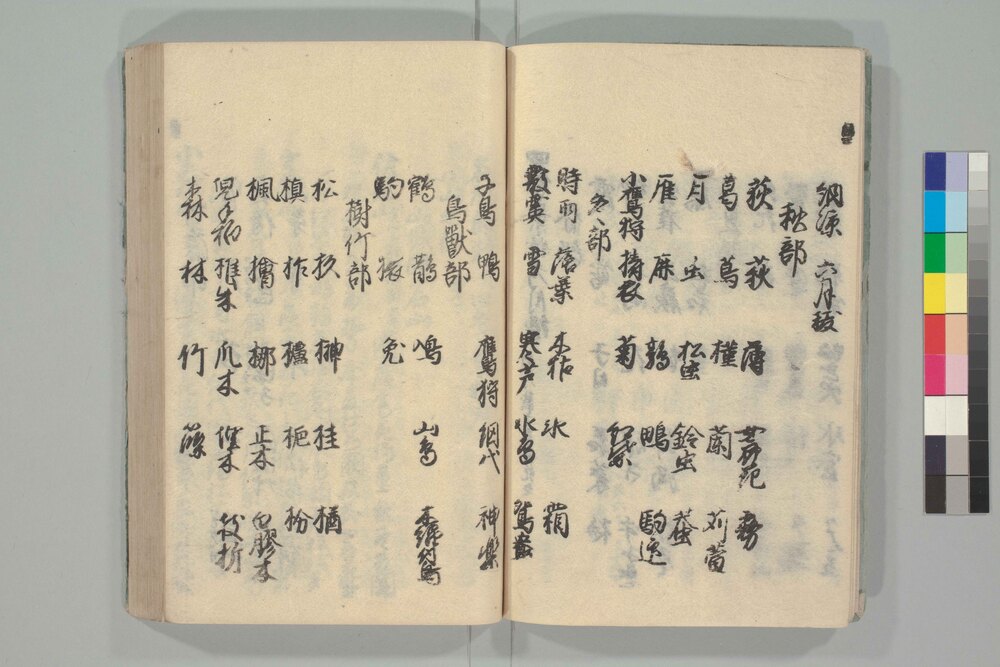 納涼 六月祓
秋部
荻 萩 薄 女郎花 蘭
葛 蔦 槿 蘭 刈萱
月 虫 松虫 鈴虫 蚕
雁 鹿 鶉 鴫 駒迎
小鷹狩 擣衣 菊 紅葉
冬部
時雨 落葉 木枯 氷 霜
霰 雪 寒芦 水鳥 鴛鴦
千鳥 鴨 鷹狩 網代 神楽
鳥獣部
鶴 鵲 鳩 山鳥 木綿付鳥
駒 猿 兎
樹竹部
松 杉 榊 桂 楢
槙 柞 櫨 梔 枌
楓 檜 梛 正木 白膠木
児手柏 椎柴 爪木 朽木 枝折
森 林 竹 篠